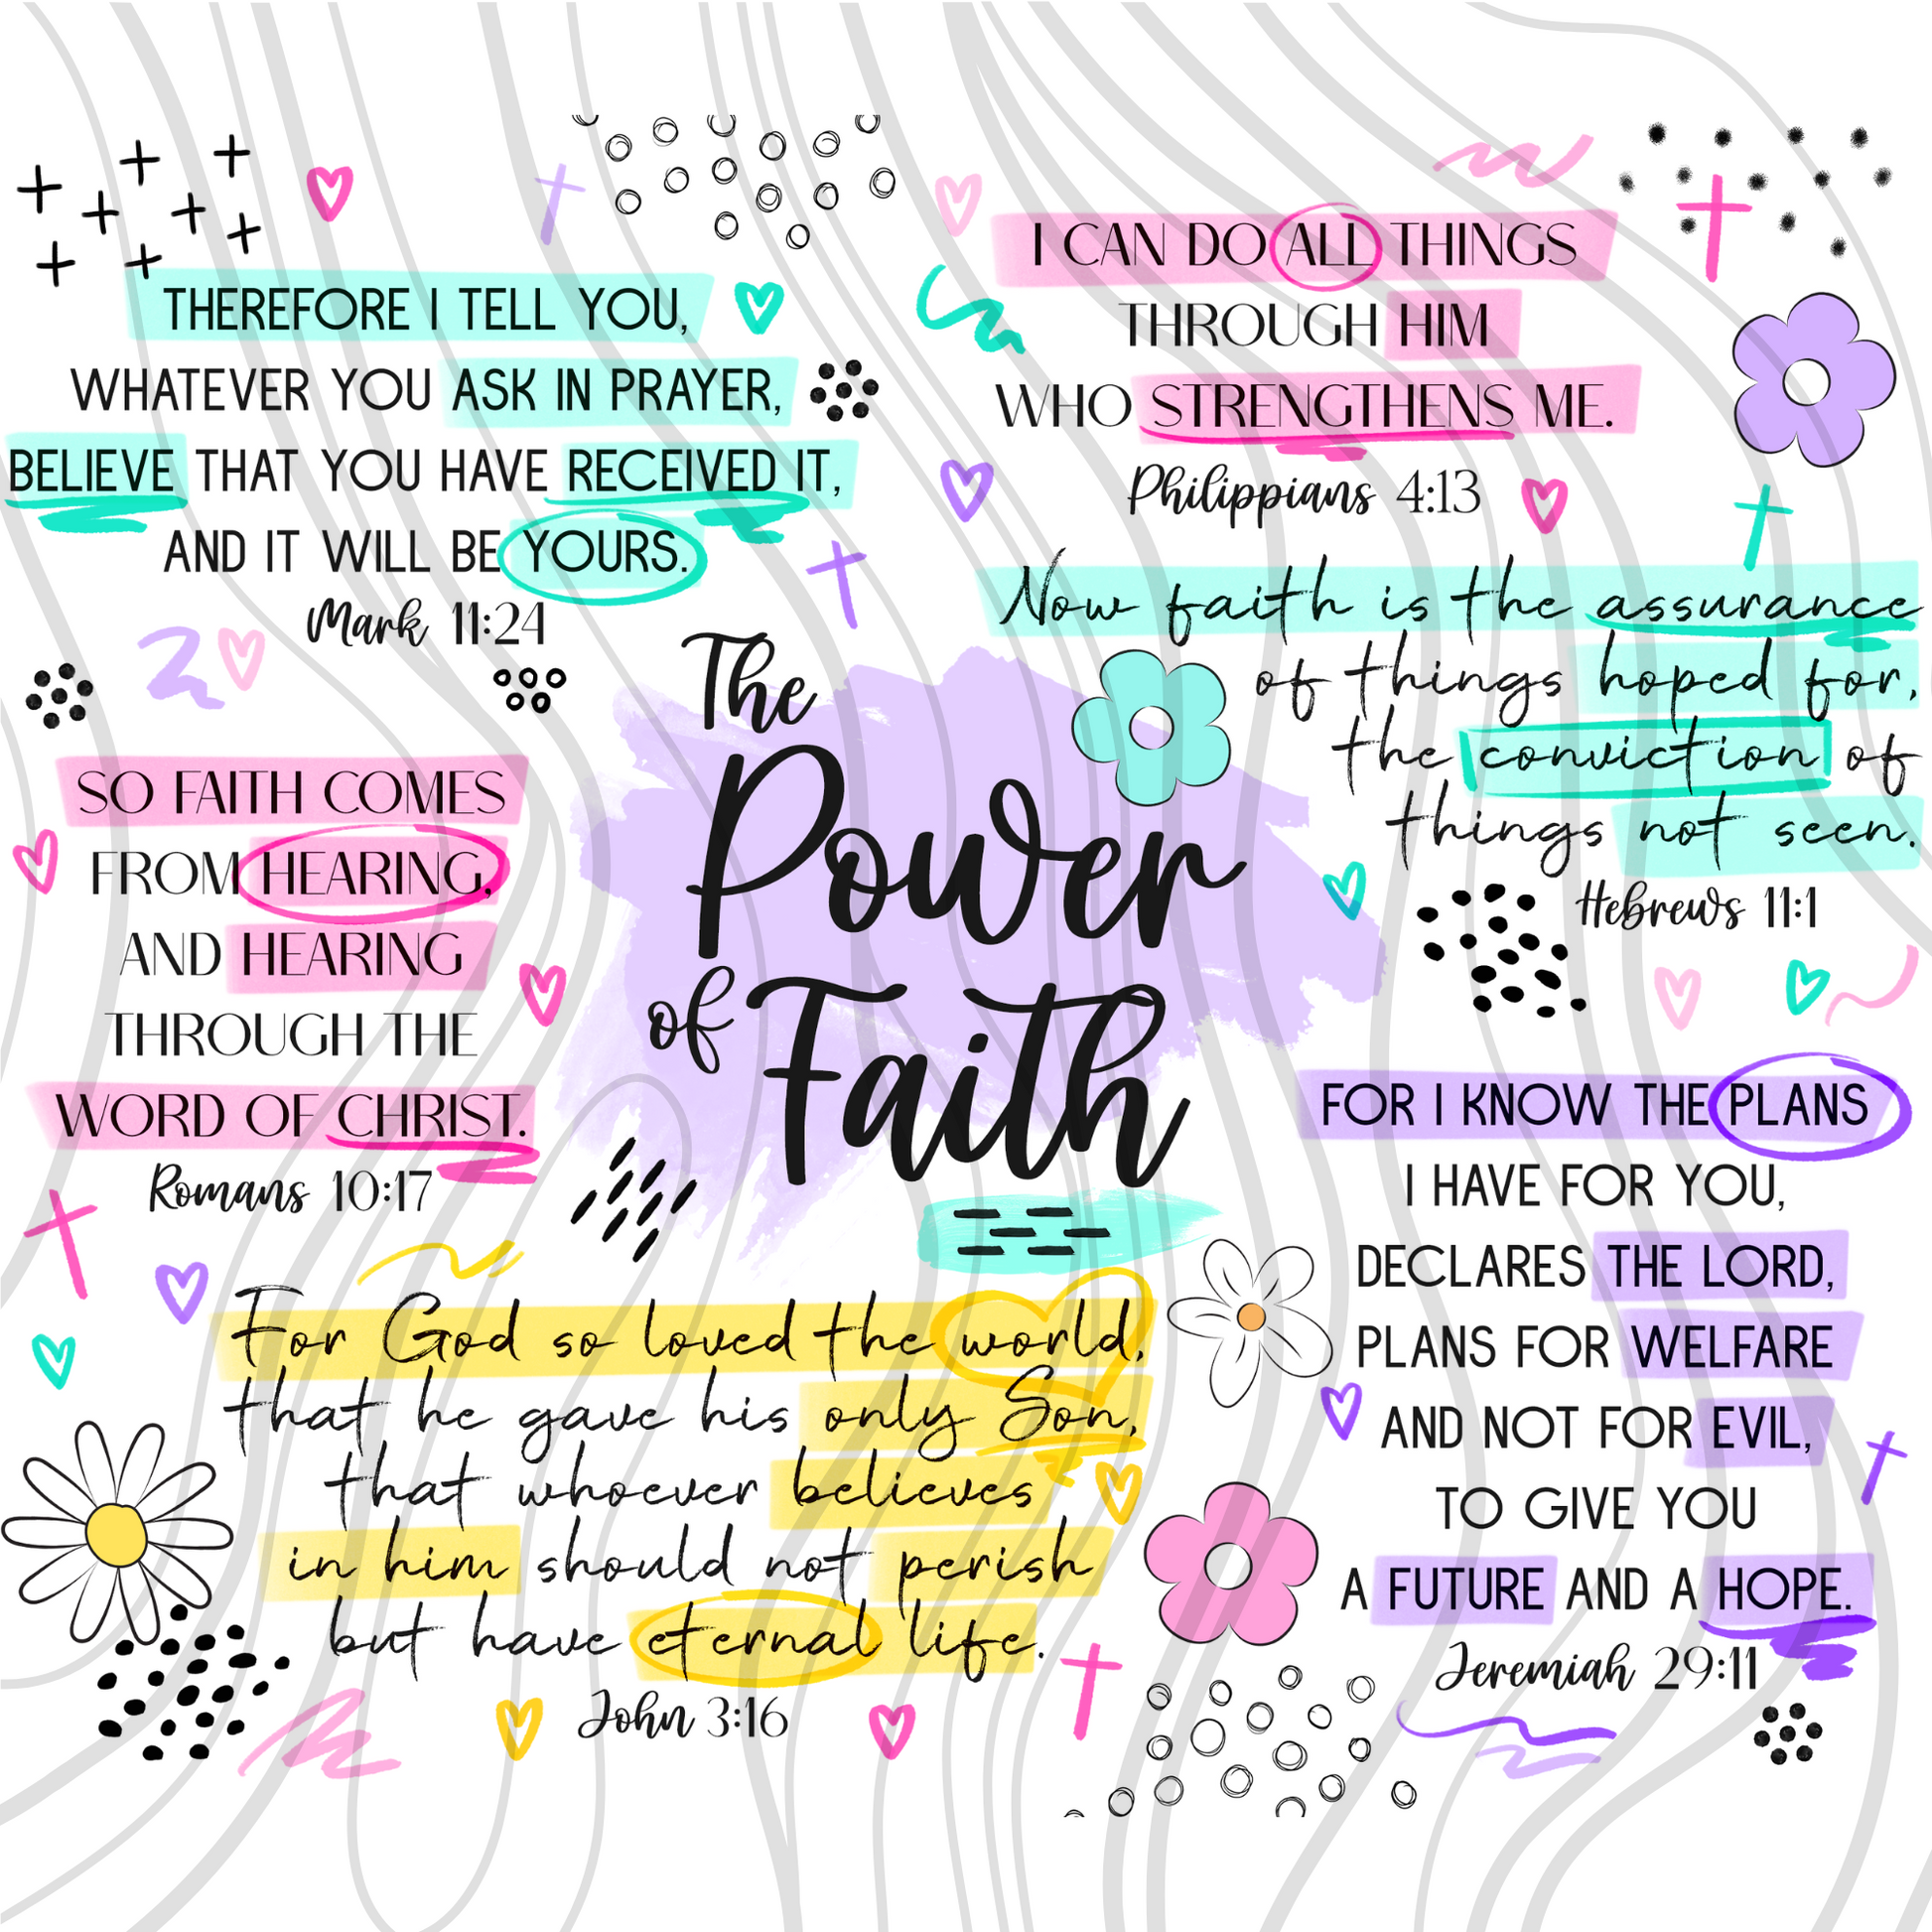 THEREFORE I TELL YOU,
WHATEVER YOU ASK IN PRAYER,
BELIEVE THAT YOU HAVE RECEIVED IT,
AND IT WILL BE YOURS.
Mark 11:24
I CAN DO ALL THINGS
THROUGH HIM
WHO STRENGTHENS ME.
Philippians 4:13
Now faith is the assurance
of things hoped for,
the conviction of
things not seen.
Hebrews 11:1
The
Power
of Faith
SO FAITH COMES
FROM HEARING,
AND HEARING
THROUGH THE
WORD OF CHRIST.
Romans 10:17
FOR I KNOW THE PLANS
I HAVE FOR YOU,
DECLARES THE LORD,
PLANS FOR WELFARE
AND NOT FOR EVIL,
TO GIVE YOU
A FUTURE AND A HOPE.
Jeremiah 29:11
For God so loved the world,
that he gave his only Son,
that whoever believes
in him should not perish
but have eternal life.
John 3:16